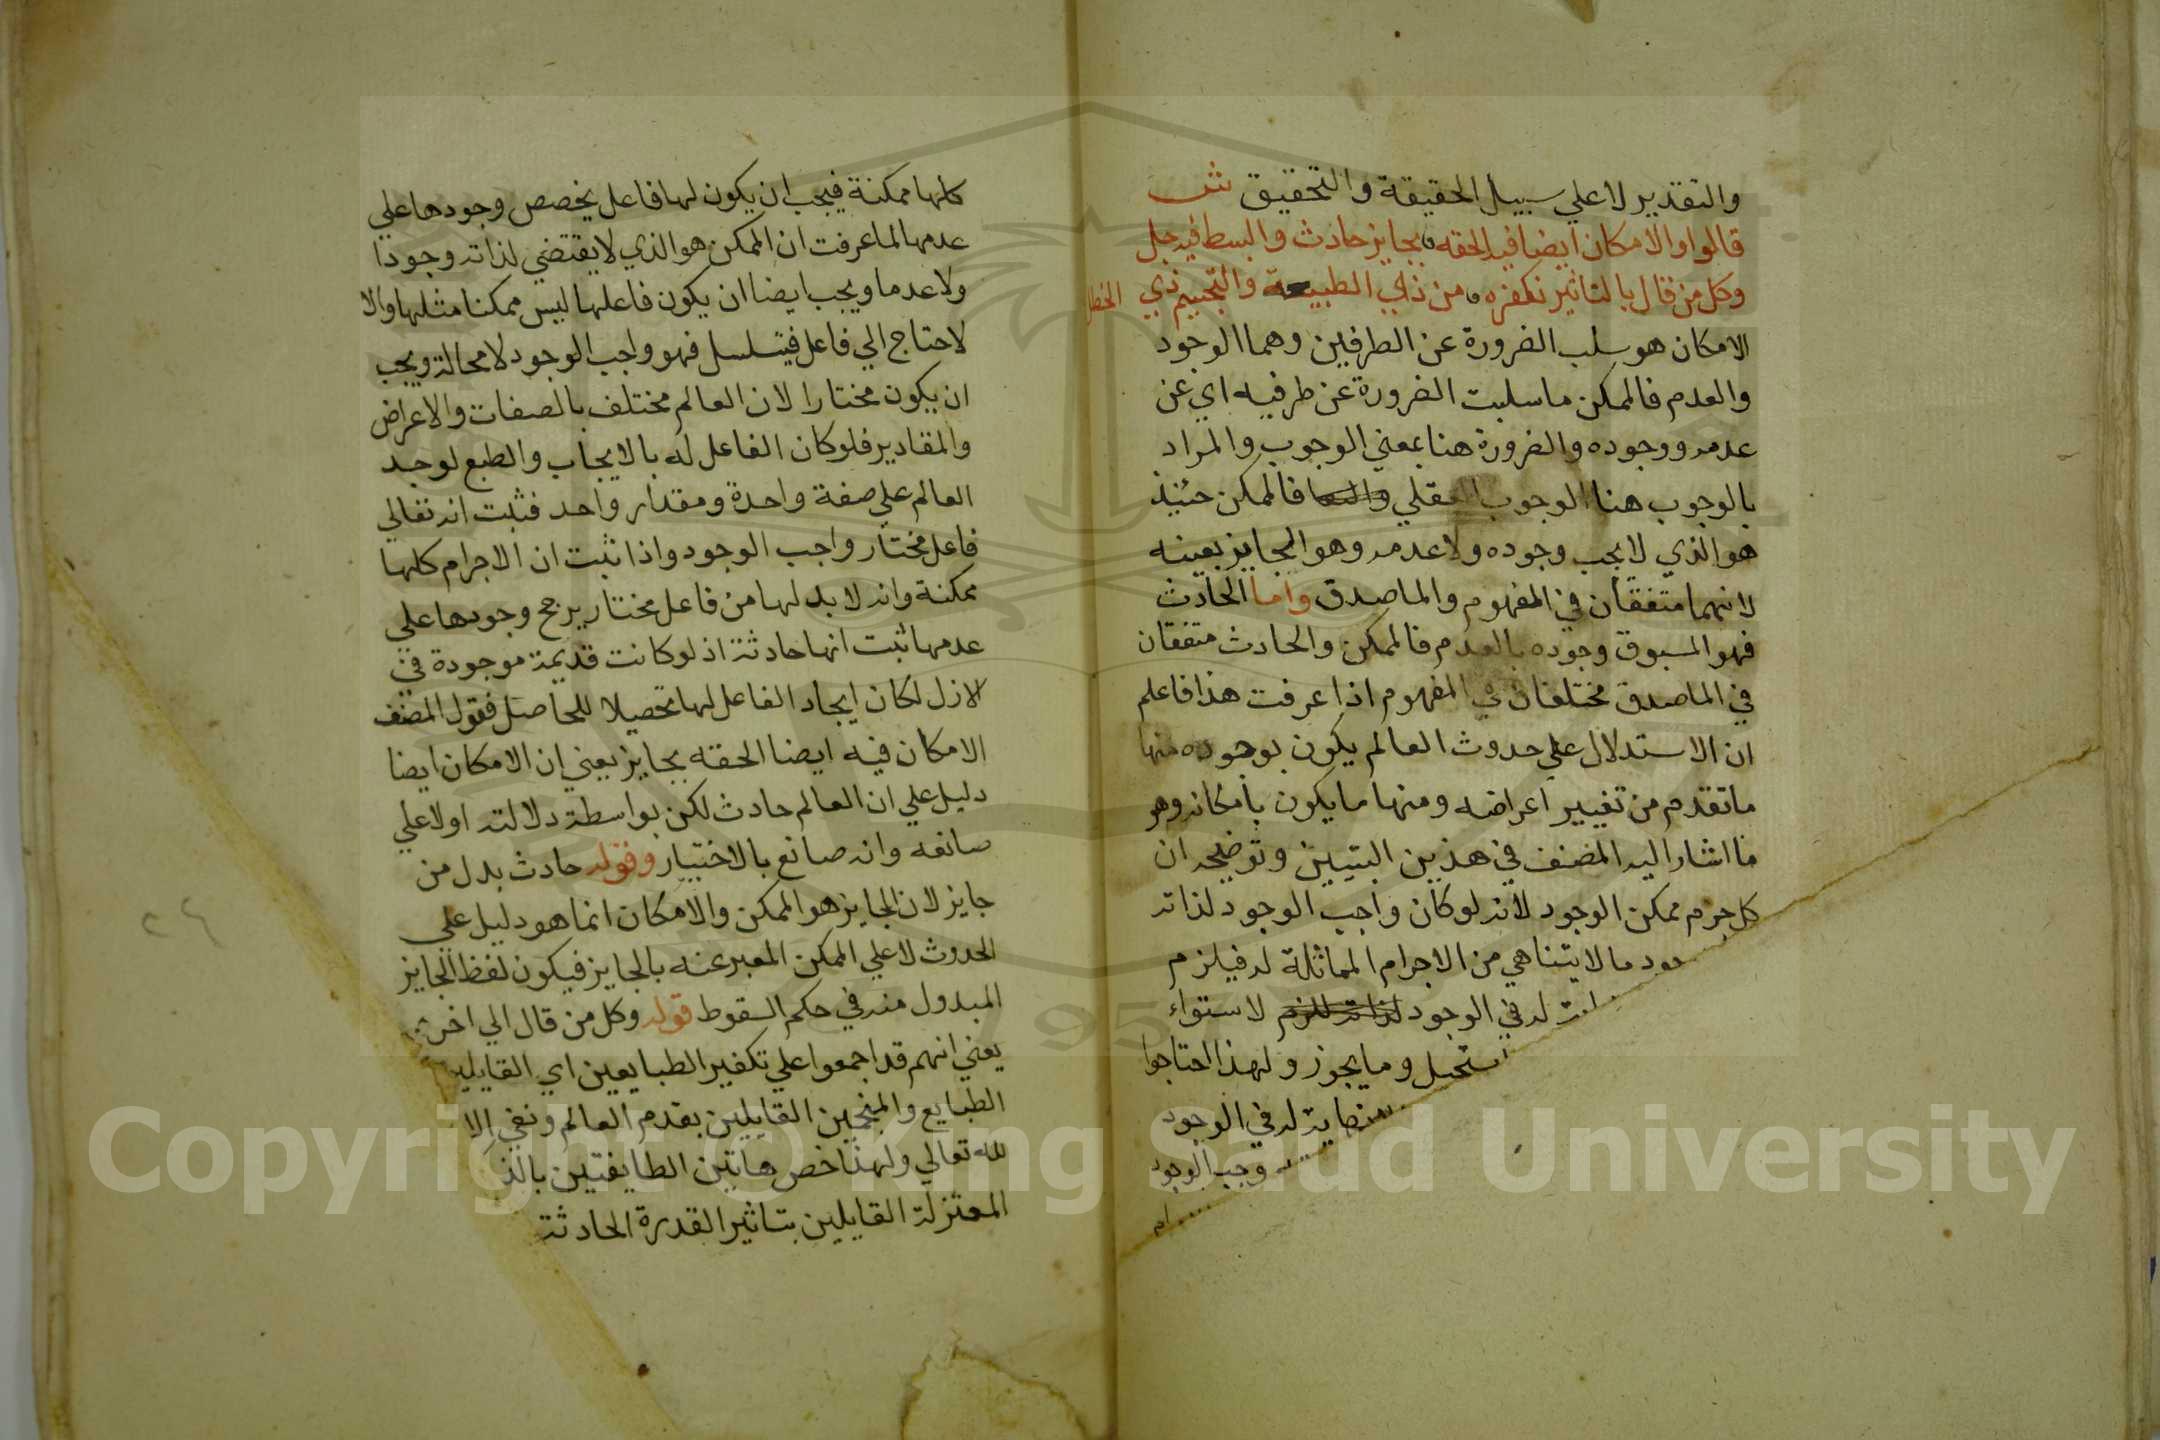 والتقدير لا علي سبيل الحقيقة والتحقيق ش
قالوا والامكان ايضا فيه الحقه بجايز حادث والبسط فيه جلي
وكل من قال بالتاثير نكفره من ذلك الطبيعة والتجيم ذي الخطل
الامكان هو سلب الضرورة عن الطرفين وهما الوجود
والعدم فالممكن ما سلبت الضرورة عن طرفيه اي عن
عدمه ووجوده والضرورة هنا بمعني الوجوب والمراد
بالوجوب هنا الوجوب العقلي فالممكن حينيذ
هو الذي لا يجب وجوده ولا عدمه وهو الجايز بعينه
لانهما متفقان في المفهوم والماصدق واما الحادث
فهو المسبوق وجوده بالعدم فالممكن والحادث متفقان
في الماصدق مختلفان في المفهوم اذا عرفت هذا فاعلم
ان الاستدلال علي حدوث العالم يكون بوجوه منها
ما تقدم من تغيير اعراضه ومنها ما يكون بامكانه وهو
ما اشار اليه المصنف في هذين البيتين وتوضيحه ان
كل جرم ممكن الوجود لانه لو كان واجب الوجود لذاته
ما لا يتناهي من الاجرام المماثلة له فيلزم
له في الوجود لاستواء
وما يجوز ولهذا احتاجوا
له في الوجود
وجب الوجود
كلها ممكنة فيجب ان يكون لها فاعل يخصص وجودها علي
عدمها لما عرفت ان الممكن هو الذي لا يقتضي لذاته وجودا
ولا عدما ويجب ايضا ان يكون فاعلها ليس ممكنا مثلها والا
لاحتاج الي فاعل فيتسلسل فهو واجب الوجود لا محالة ويجب
ان يكون مختارا لان العالم مختلف بالصفات والاعراض
والمقادير فلو كان الفاعل له بالايجاب والطبع لوجد
العالم علي صفة واحدة ومقدار واحد فثبت انه تعالي
فاعل مختار واجب الوجود واذا ثبت ان الاجرام كلها
ممكنة وانه لا بد لها من فاعل مختار يرجح وجودها علي
عدمها ثبت انها حادثة اذ لو كانت قديمة موجودة في
الازل لكان ايجاد الفاعل لها تحصيلا للحاصل فقول المصنف
الامكان فيه ايضا الحقه بجايز يعني ان الامكان ايضا
دليل علي ان العالم حادث لكن بواسطة دلالته اولا علي
صانعه وانه صانع بالاختيار وقوله حادث بدل من
جايز لان الجايز هو الممكن والامكان انما هو دليل علي
الحدوث لا علي الممكن المعبر عنه بالجايز فيكون لفظ الجايز
المبدول منه في حكم السقوط قوله وكل من قال الي اخره
يعني انهم قد اجمعوا علي تكفير الطبايعين اي القايلين
الطبايع والمنجمين القايلين بقدم العالم ونفي الا
لله تعالي ولهذا خص هاتين الطايفتين بالذ
المعتزلة القايلين بتاثير القدرة الحادثة
٢٤
Copyright © King Saud University